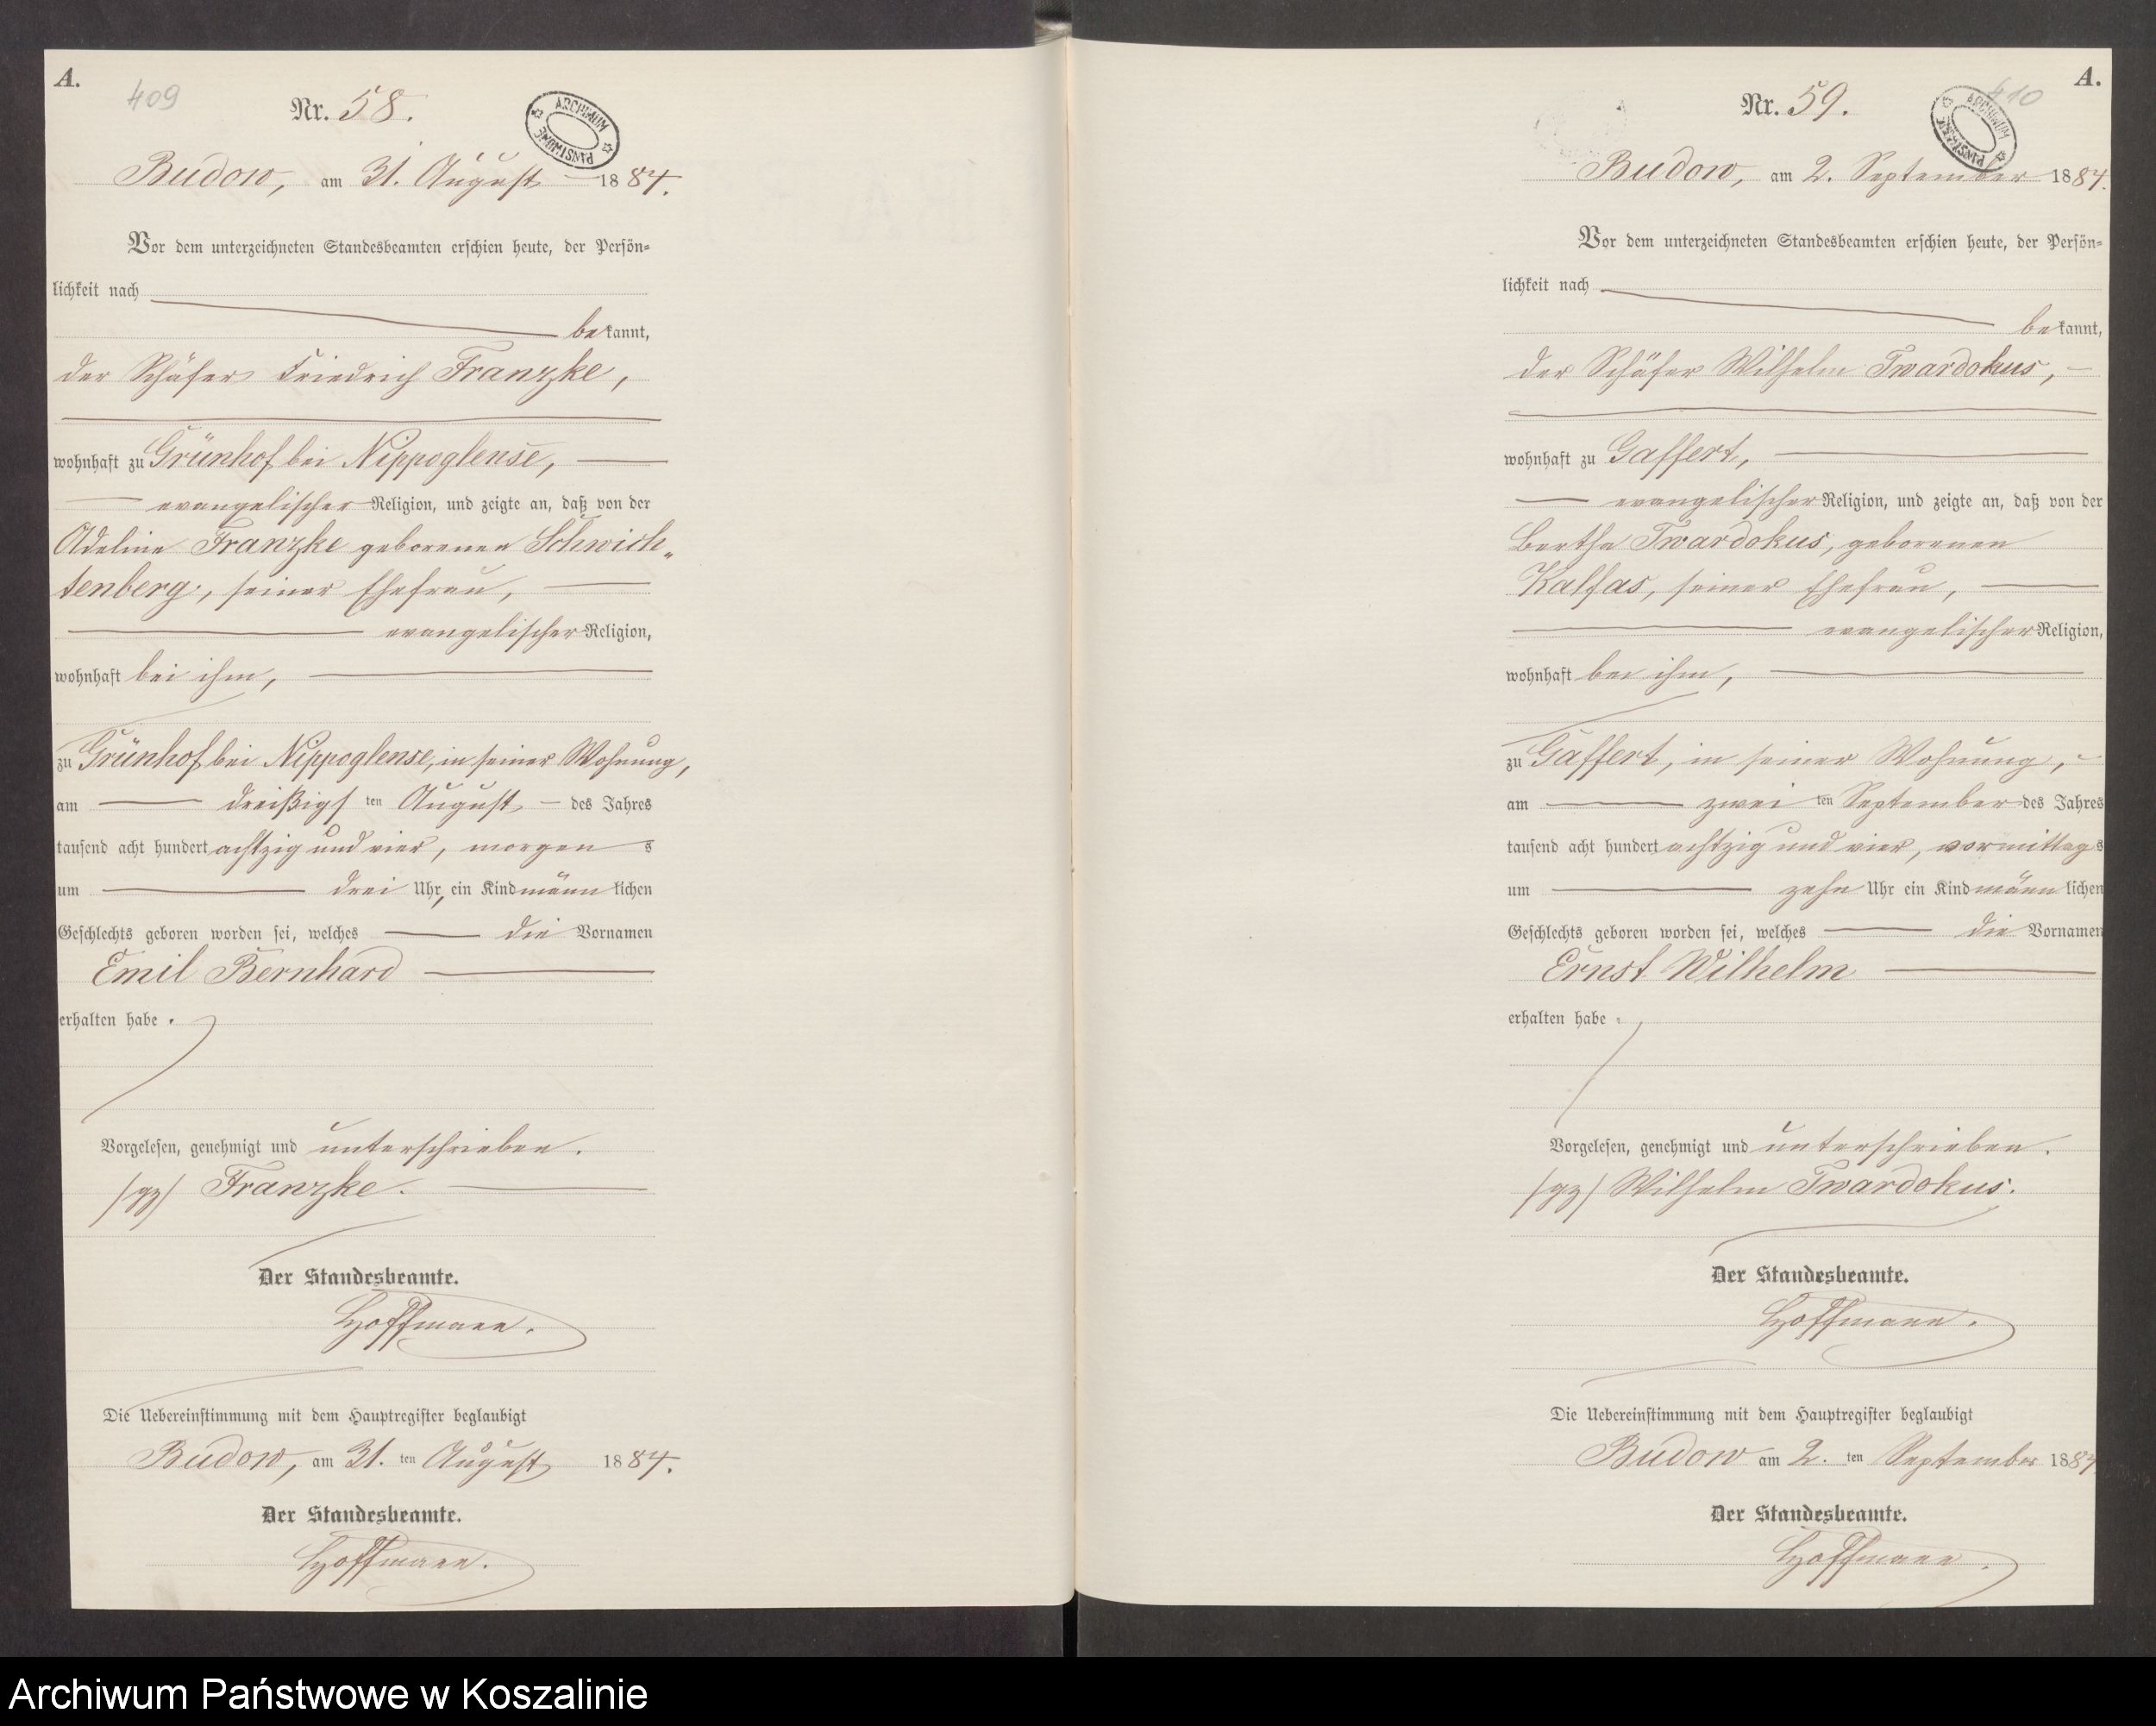 A.
409
Nr. 58.
ARCHIWUM PAŃSTWOWE
Budow, am 31. August 1884.
Vor dem unterzeichneten Standesbeamten erschien heute, der Persön=
lichkeit nach
bekannt,
der Schäfer Friedrich Franzke,
wohnhaft zu Grünhof bei Nippoglense,
evangelischer Religion, und zeigte an, daß von der
Adeline Franzke geborenen Schwich„
tenberg, seiner Ehefrau,
evangelischer Religion,
wohnhaft bei ihm,
zu Grünhof bei Nippoglense, in seiner Wohnung,
am dreißigsten August des Jahres
tausend acht hundert achtzig und vier, morgens
um drei Uhr, ein Kind männlichen
Geschlechts geboren worden sei, welches die Vornamen
Emil Bernhard
erhalten habe.
Vorgelesen, genehmigt und unterschrieben.
/gz/ Franzke.
Der Standesbeamte.
Hoffmann.
Die Uebereinstimmung mit dem Hauptregister beglaubigt
Budow, am 31. ten August 1884.
Der Standesbeamte.
Hoffmann.
A.
410
Nr. 59.
ARCHIWUM PAŃSTWOWE
Budow, am 2. September 1884.
Vor dem unterzeichneten Standesbeamten erschien heute, der Persön=
lichkeit nach
bekannt,
der Schäfer Wilhelm Twardokus,
wohnhaft zu Gaffert,
evangelischer Religion, und zeigte an, daß von der
Bertha Twardokus, geborenen
Kalfas, seiner Ehefrau,
evangelischer Religion,
wohnhaft bei ihm,
zu Gaffert, in seiner Wohnung,
am zweiten September des Jahres
tausend acht hundert achtzig und vier, vormittags
um zehn Uhr ein Kind männlichen
Geschlechts geboren worden sei, welches die Vornamen
Ernst Wilhelm
erhalten habe.
Vorgelesen, genehmigt und unterschrieben.
/gz/ Wilhelm Twardokus.
Der Standesbeamte.
Hoffmann.
Die Uebereinstimmung mit dem Hauptregister beglaubigt
Budow am 2. ten September 1884
Der Standesbeamte.
Hoffmann.
Archiwum Państwowe w Koszalinie